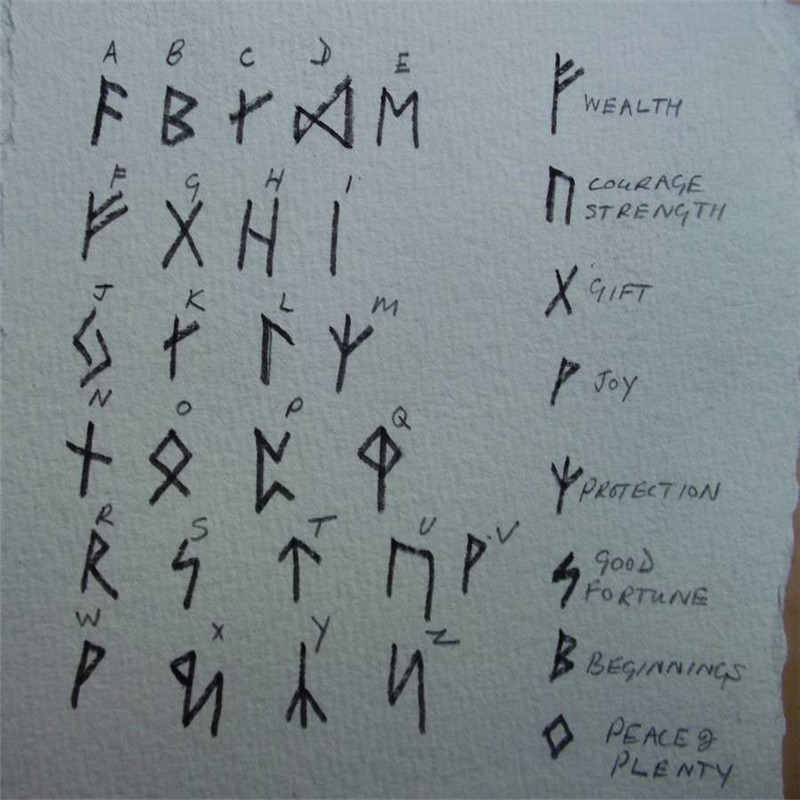 A B C D E
ᚨ ᛒ ᚲ ᛞ ᛖ
F G H I
ᚠ ᚷ ᚺ ᛁ
J K L M
ᛃ ᚲ ᛚ ᛉ
N O P Q
ᚾ ᛟ ᛈ ᛩ
R S T U V
ᚱ ᛋ ᛏ ᚢ ᚹ
W X Y Z
ᚹ ᛪ ᛣ ᛋ
ᚠ WEALTH
ᚢ COURAGE
STRENGTH
ᚷ GIFT
ᚹ JOY
ᛉ PROTECTION
ᛋ GOOD
FORTUNE
ᛒ BEGINNINGS
ᛜ PEACE &
PLENTY